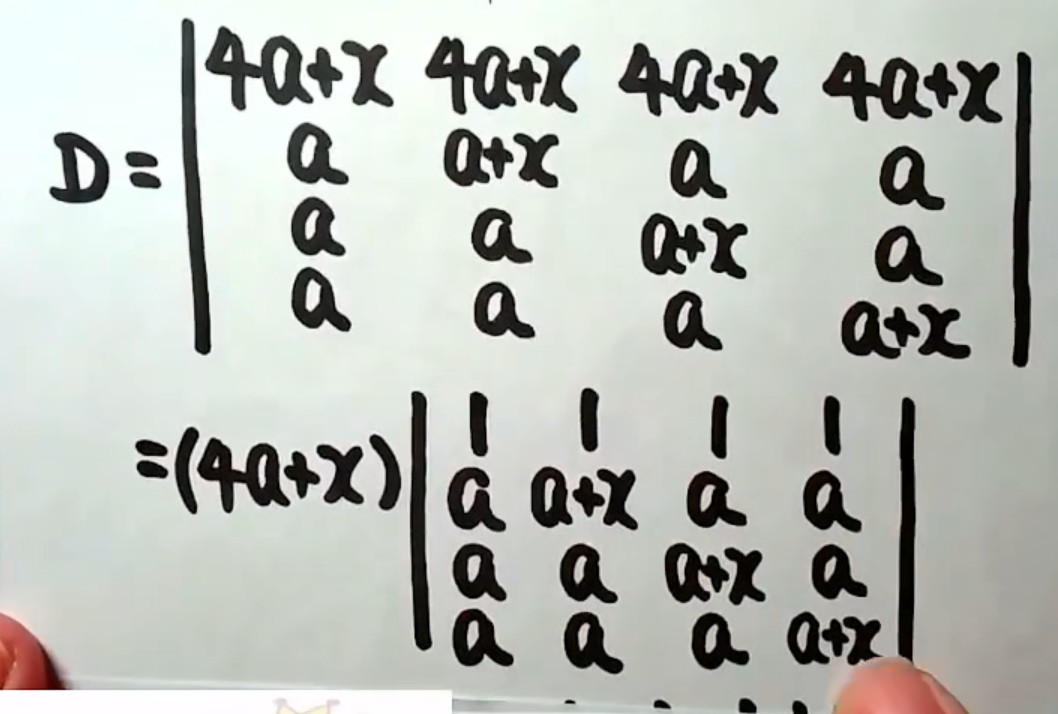 4a+x 4a+x 4a+x 4a+x
D= a a+x a a
a a a+x a
a a a a+x
1 1 1 1
=(4a+x) a a+x a a
a a a+x a
a a a a+x